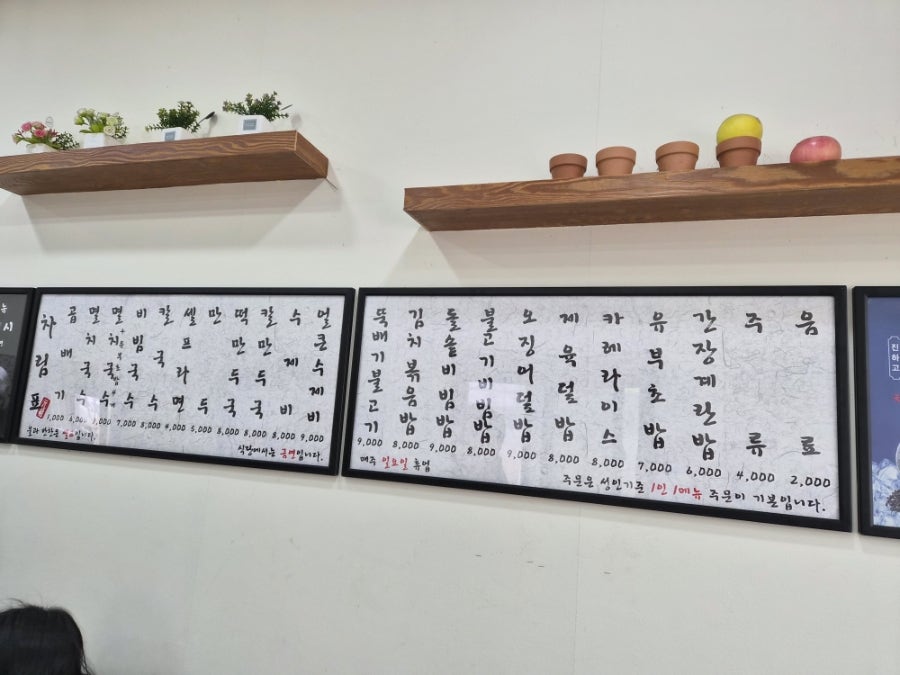 차림표
곱배기 1,000
멸치국수 6,000
멸치국수
비빔국수 7,000
칼국수 8,000
셀프라면 4,000
만두 5,000
떡만두국 8,000
칼만두국 8,000
수제비 8,000
얼큰수제비 9,000
물과 반찬은 셀프입니다.
식당에서는 금연입니다.
뚝배기불고기 9,000
김치볶음밥 8,000
돌솥비빔밥 9,000
불고기비빔밥 8,000
오징어덮밥 9,000
제육덮밥 8,000
카레라이스 8,000
유부초밥 7,000
간장계란밥 6,000
주류 4,000
음료 2,000
매주 일요일 휴업
주문은 성인기준 1인 1메뉴 주문이 기본입니다.
진하고